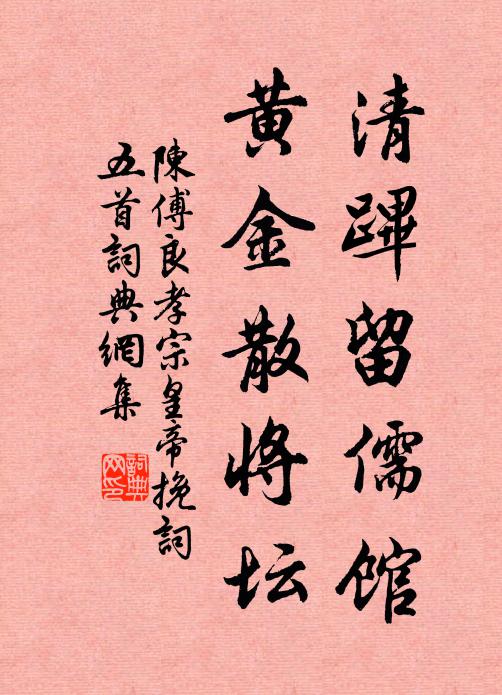 清蹕留儒馆
黄金散将坛
陳傅良孝宗皇帝挽詞
五首詞典網集
詞典
网印